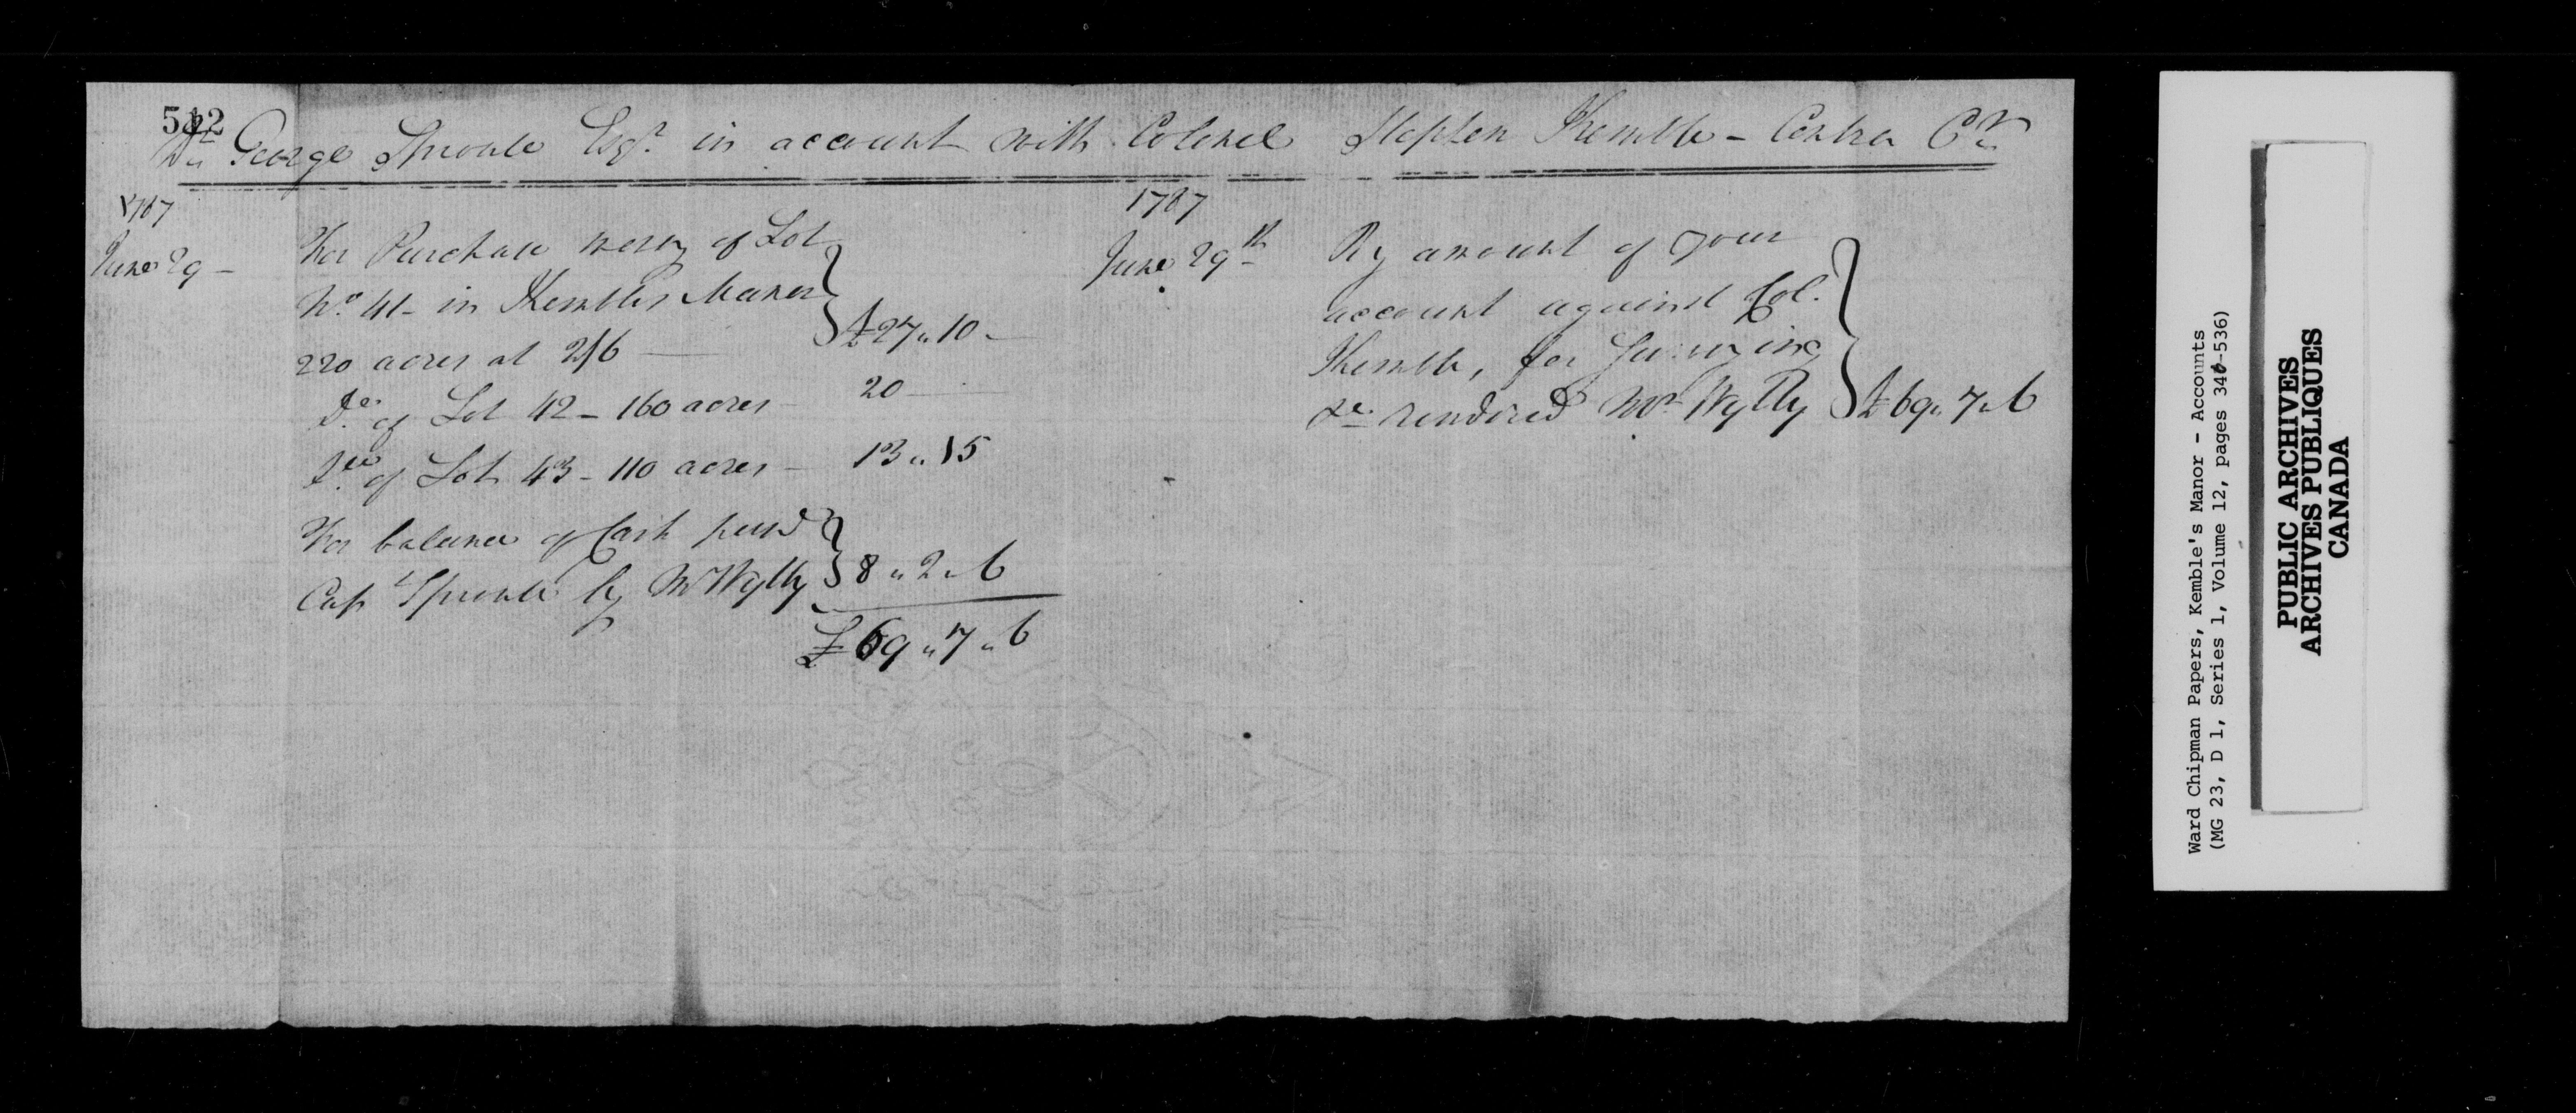 512
Dr. George Sproule Esqr. in account with Colonel Stephen Kemble - Contra Cr.
1787
June 29 -
For Purchase money of Lot
No. 41 - in Kembles Manor
220 acres at 2/6 — £27 " 10 -
Do. of Lot 42 - 160 acres - 20 —
Do. of Lot 43 - 110 acres - 13 " 15
For balance of Cash paid
Capt Sproule by Mr Wylly 8 " 2 " 6
£69 " 7 " 6
1787
June 29th
By amount of your
account against Col.
Kemble, for Surveying
&c. rendered Mr Wylly £69 " 7 " 6
Ward Chipman Papers, Kemble's Manor - Accounts
(MG 23, D 1, Series 1, Volume 12, pages 346-536)
PUBLIC ARCHIVES
ARCHIVES PUBLIQUES
CANADA